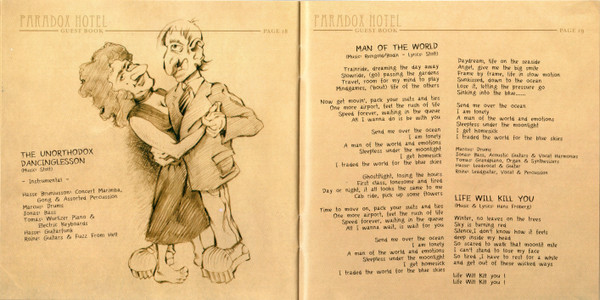 PARADOX HOTEL
GUEST BOOK
PAGE 28
THE UNORTHODOX
DANCINGLESSON
(Music: Stolt)
- Instrumental -
Hasse Bruniusson: Concert Marimba,
Gong & Assorted Percussion
Marcus: Drums
Jonas: Bass
Tomas: Wurlitzer Piano &
Electric Keyboards
Hasse: Guitarfunk
Roine: Guitars & Fuzz From Hell
PARADOX HOTEL
GUEST BOOK
PAGE 29
MAN OF THE WORLD
(Music: Reingold/Stolt - Lyrics: Stolt)
Trainride, dreaming the day away
Slowride, (go) passing the gardens
Travel, room for my mind to play
Mindgames, ('bout) life of the others
Now get movin', pack your suits and ties
One more airport, beat the rush of life
Speed forever, waiting in the queue
All I wanna do is be with you
Send me over the ocean
I am lonely
A man of the world and emotions
Sleepless under the moonlight
I get homesick
I traded the world for the blue skies
Ghostflight, losing the hours
First class, lonesome and tired
Day or night, it all looks the same to me
Cab ride, pick up some flowers
Time to move on, pack your suits and ties
One more airport, beat the rush of life
Speed forever, waiting in the queue
All I wanna, wait, is wait for you
Send me over the ocean
I am lonely
A man of the world and emotions
Sleepless under the moonlight
I get homesick
I traded the world for the blue skies
Daydream, life on the seaside
Angel, give me the big smile
Frame by frame, life in slow motion
Sunkissed, down to the ocean
Lose it, letting the pressure go
Sinking into the blue......
Send me over the ocean
I am lonely
A man of the world and emotions
Sleepless under the moonlight
I get homesick
I traded the world for the blue skies
Marcus: Drums
Jonas: Bass, Acoustic Guitars & Vocal Harmonies
Tomas: Grandpiano, Organ & Synthesizers
Hasse: Leadvocal & Guitar
Roine: Leadguitar, Vocal & Percussion
LIFE WILL KILL YOU
(Music & Lyrics: Hans Fröberg)
Winter, no leaves on the trees
Sky is turning red
Silence, I don't know how it feels
deep inside my head
So scared to walk that moonlit mile
I can't stand to lose my face
So tired, I have to rest for a while
and get out of these walked ways
Life Will Kill you !
Life Will Kill you !